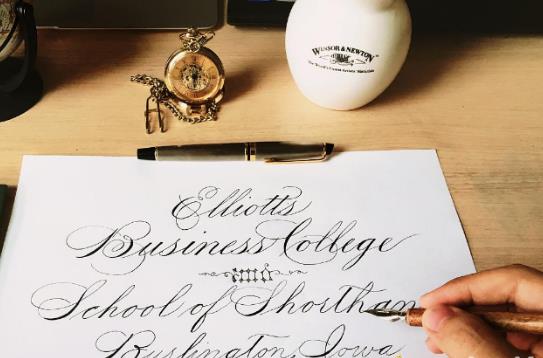 WINSOR & NEWTON
Elliotts
Business College
and
School of Shorthan
Burlington, Iowa